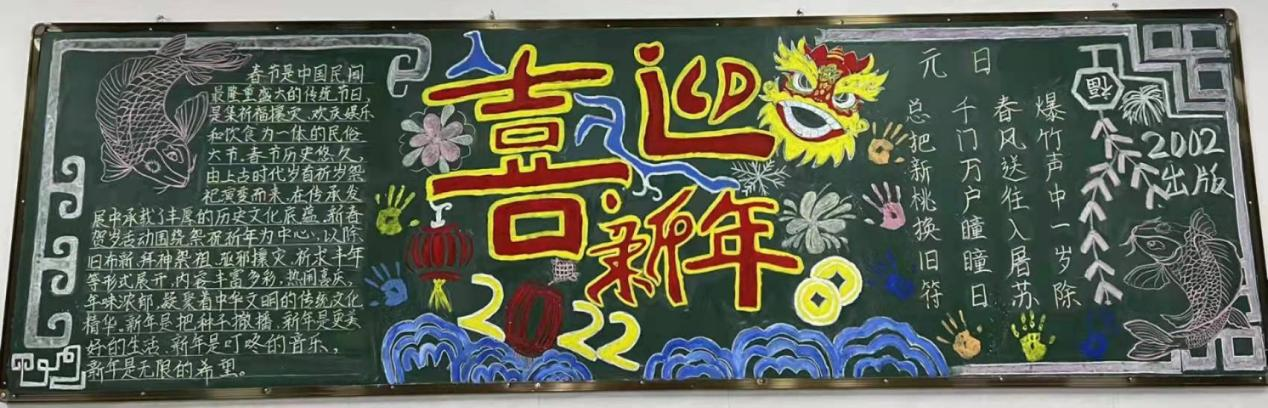 春节是中国民间
最隆重盛大的传统节日，
是集祈福攘灾、欢庆娱乐
和饮食为一体的民俗
大节。春节历史悠久，
由上古时代岁首祈岁祭
祀演变而来，在传承发
展中承载了丰厚的历史文化底蕴。新春
贺岁活动围绕祭祝祈年为中心，以除
旧布新、拜神祭祖、驱邪攘灾、祈求丰年
等形式展开，内容丰富多彩，热闹喜庆，
年味浓郁，凝聚着中华文明的传统文化
精华。新年是把种子撒播，新年是更美
好的生活，新年是叮咚的音乐，
新年是无限的希望。
喜迎
新年
2022
元日
爆竹声中一岁除
春风送往入屠苏
千门万户瞳瞳日
总把新桃换旧符
福
2002
出版